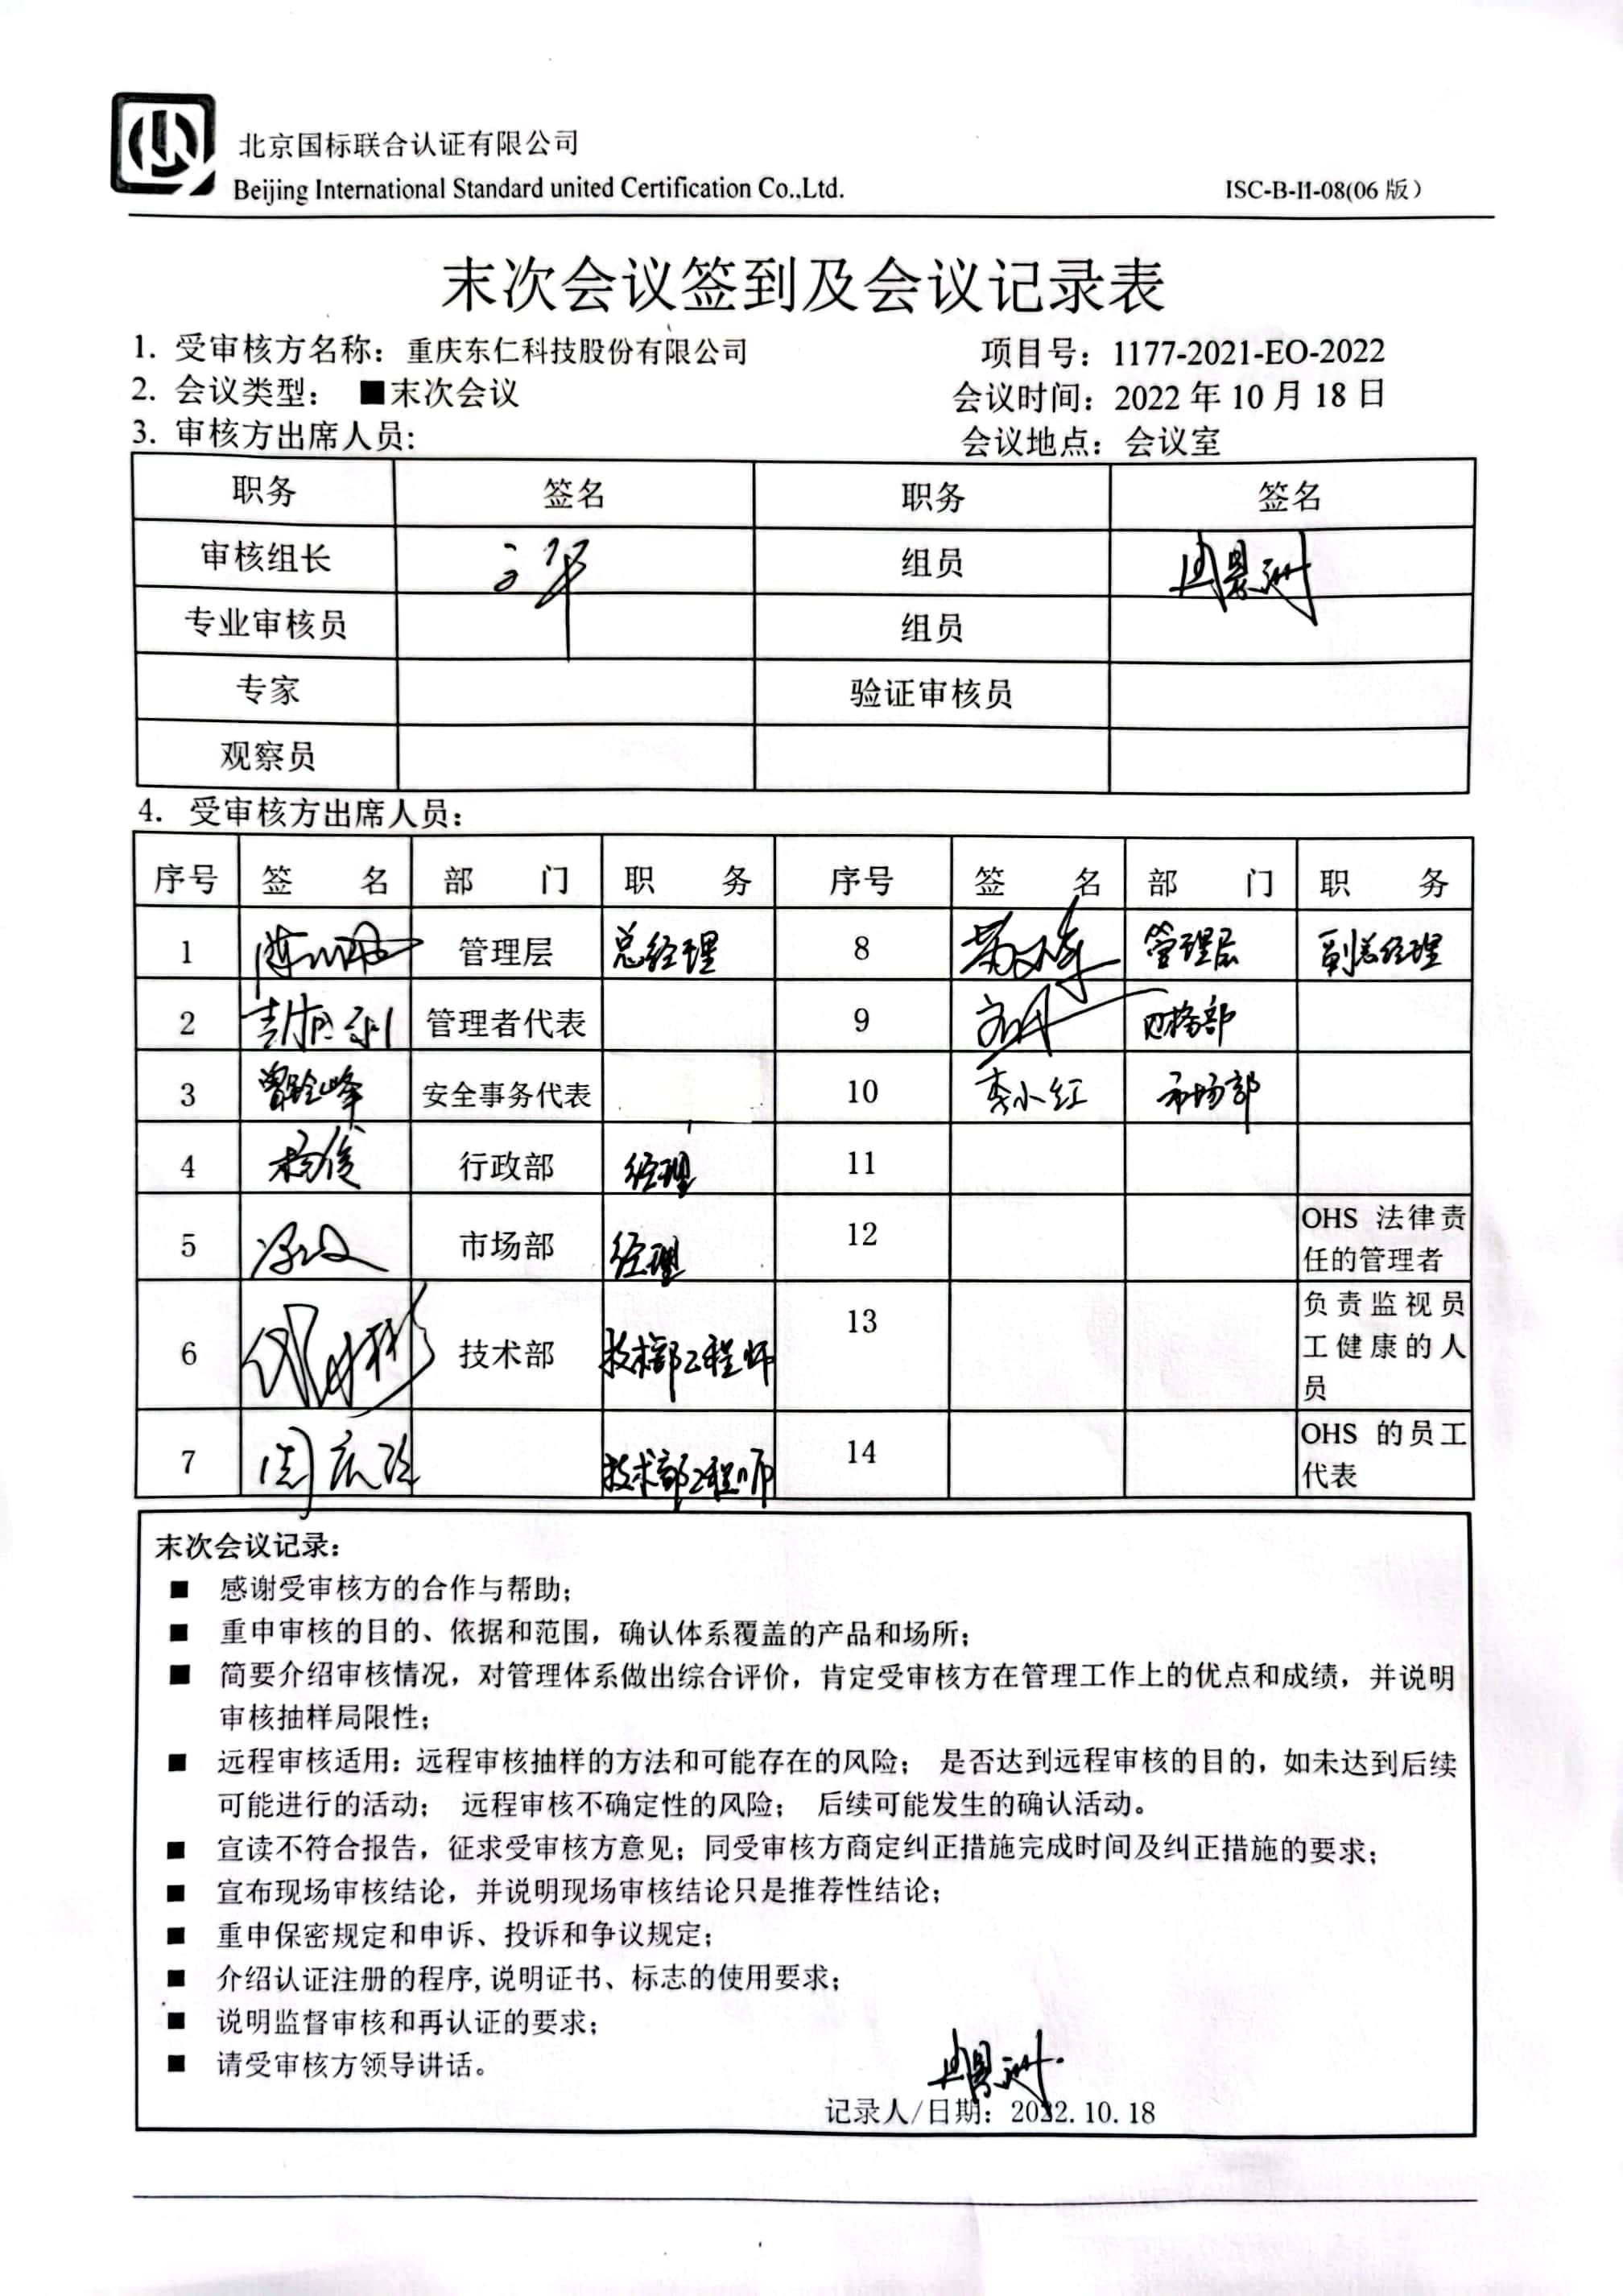 北京国标联合认证有限公司
Beijing International Standard united Certification Co.,Ltd.
ISC-B-II-08(06 版）
末次会议签到及会议记录表
1. 受审核方名称：重庆东仁科技股份有限公司 项目号：1177-2021-EO-2022
2. 会议类型： ■末次会议 会议时间：2022 年 10 月 18 日
3. 审核方出席人员: 会议地点：会议室
职务 签名 职务 签名
审核组长 组员
专业审核员 组员
专家 验证审核员
观察员
4. 受审核方出席人员：
序号 签 名 部 门 职 务 序号 签 名 部 门 职 务
1 管理层 总经理 8 管理层 副总经理
2 管理者代表 9 财务部
3 安全事务代表 10 李小红 市场部
4 杨俊 行政部 经理 11
5 市场部 经理 12 OHS 法律责
任的管理者
6 技术部 技术部工程师 13 负责监视员
工健康的人
员
7 技术部工程师 14 OHS 的员工
代表
末次会议记录：
■ 感谢受审核方的合作与帮助；
■ 重申审核的目的、依据和范围，确认体系覆盖的产品和场所；
■ 简要介绍审核情况，对管理体系做出综合评价，肯定受审核方在管理工作上的优点和成绩，并说明
审核抽样局限性；
■ 远程审核适用：远程审核抽样的方法和可能存在的风险； 是否达到远程审核的目的，如未达到后续
可能进行的活动； 远程审核不确定性的风险； 后续可能发生的确认活动。
■ 宣读不符合报告，征求受审核方意见；同受审核方商定纠正措施完成时间及纠正措施的要求；
■ 宣布现场审核结论，并说明现场审核结论只是推荐性结论；
■ 重申保密规定和申诉、投诉和争议规定；
■ 介绍认证注册的程序,说明证书、标志的使用要求；
■ 说明监督审核和再认证的要求；
■ 请受审核方领导讲话。
记录人/日期：2022.10.18